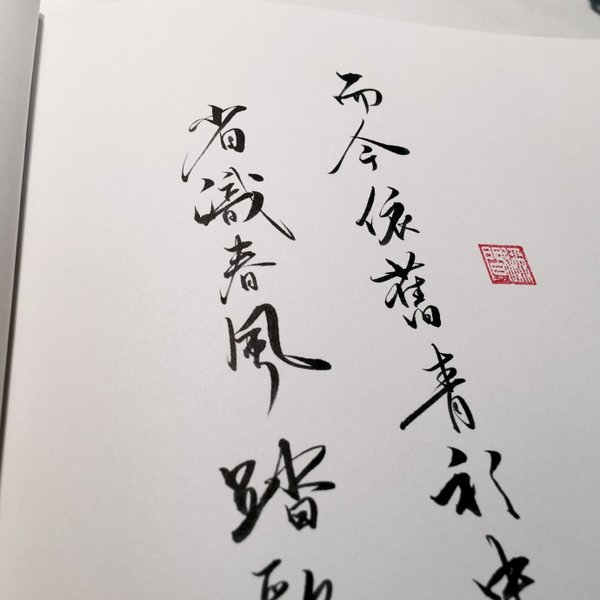 而今依舊青衫
省識春風踏